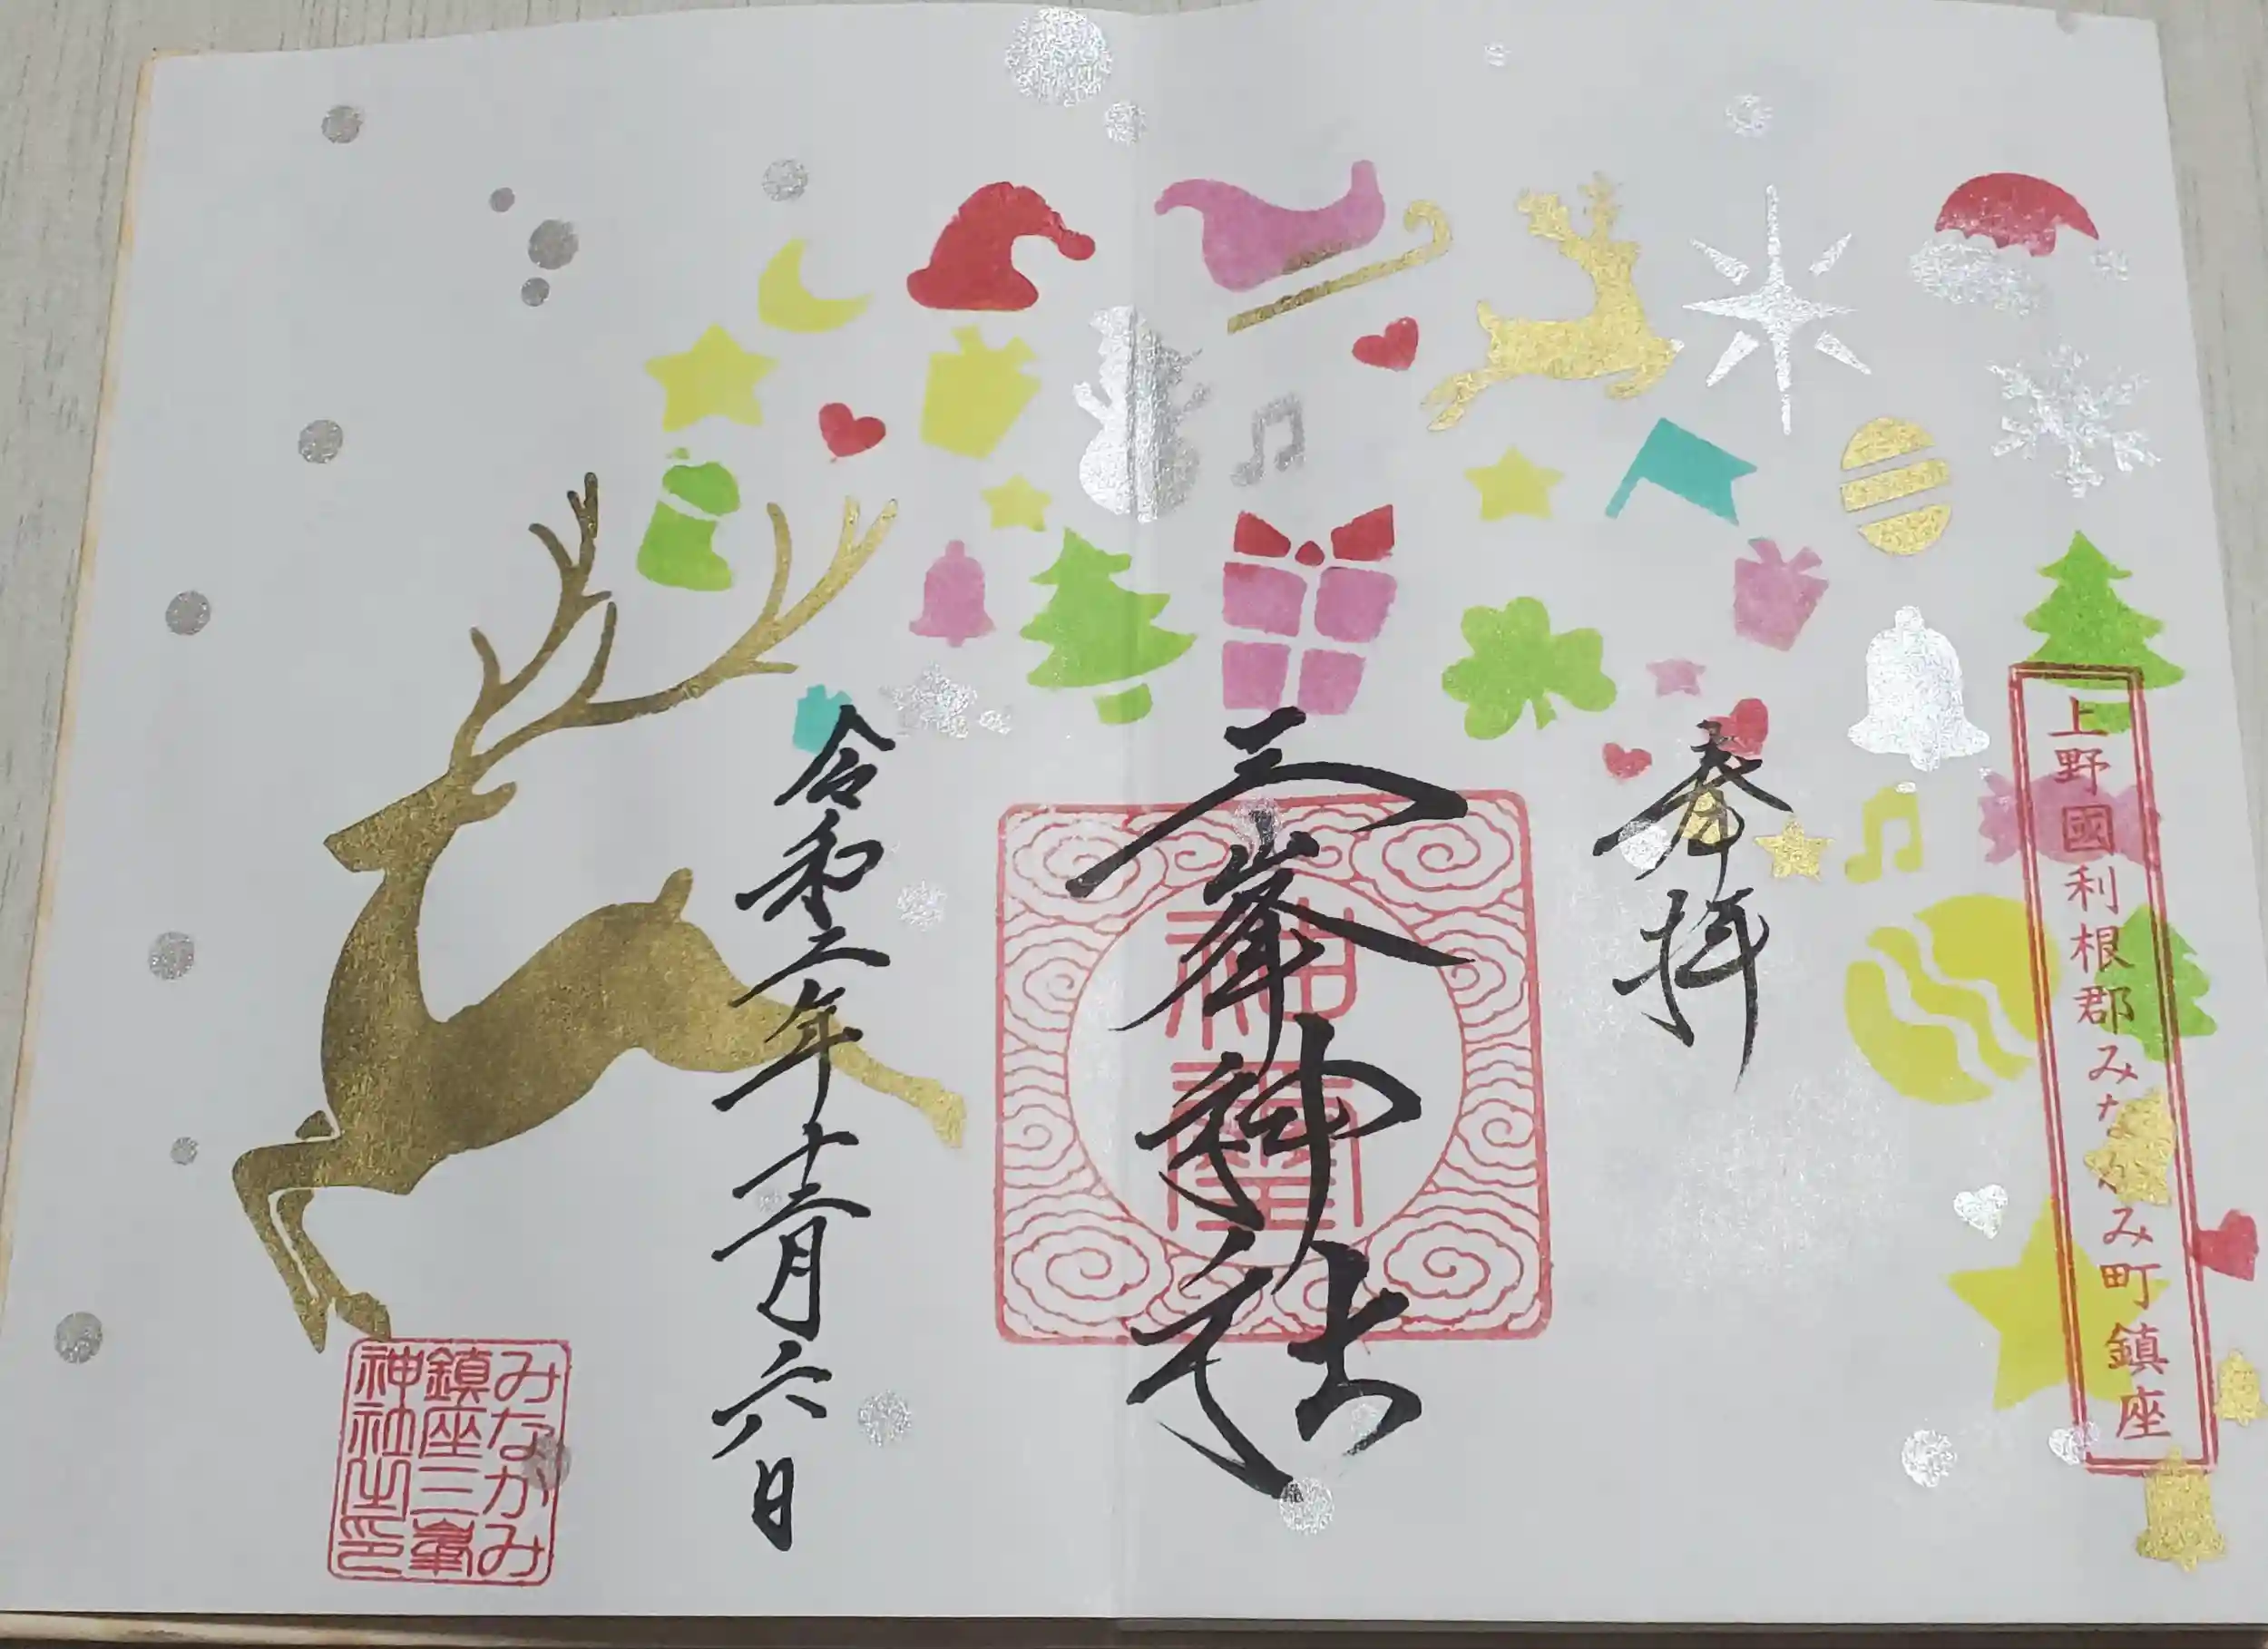 上野國利根郡みなかみ町鎮座
奉拝
三峯神社
神璽
令和二年十二月六日
みなかみ
鎮座三峯
神社之印